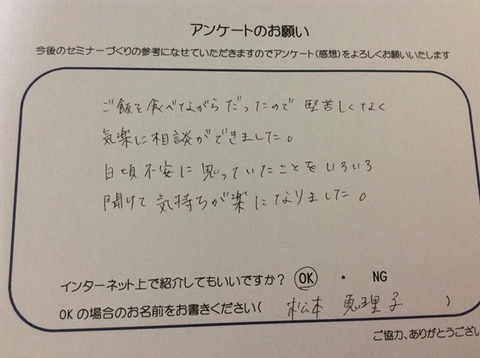 アンケートのお願い
今後のセミナーづくりの参考になせていただきますのでアンケート(感想)をよろしくお願いいたします
ご飯を食べながらだったので 堅苦しくなく
気楽に相談ができました。
日頃不安に思っていたことをいろいろ
聞けて気持ちが楽になりました。
インターネット上で紹介してもいいですか? OK ・ NG
OKの場合のお名前をお書きください( 松本 恵理子 )
ご協力、ありがとうござい